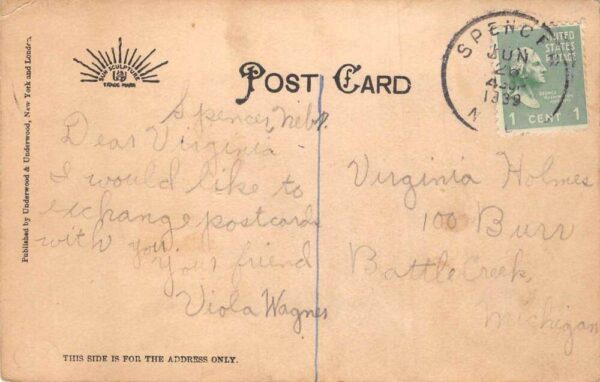 Published by Underwood & Underwood, New York and London.
SUN SCULPTURE
U&U
TRADE MARK
POST CARD
SPENCER
JUN
26
1939
N
UNITED
STATES
POSTAGE
1 CENT 1
Spencer, Nebr.
Dear Virginia
I would like to
exchange postcards
with you.
Your friend
Viola Wagner
Virginia Holmes
100 Burr
Battle Creek,
Michigan
THIS SIDE IS FOR THE ADDRESS ONLY.